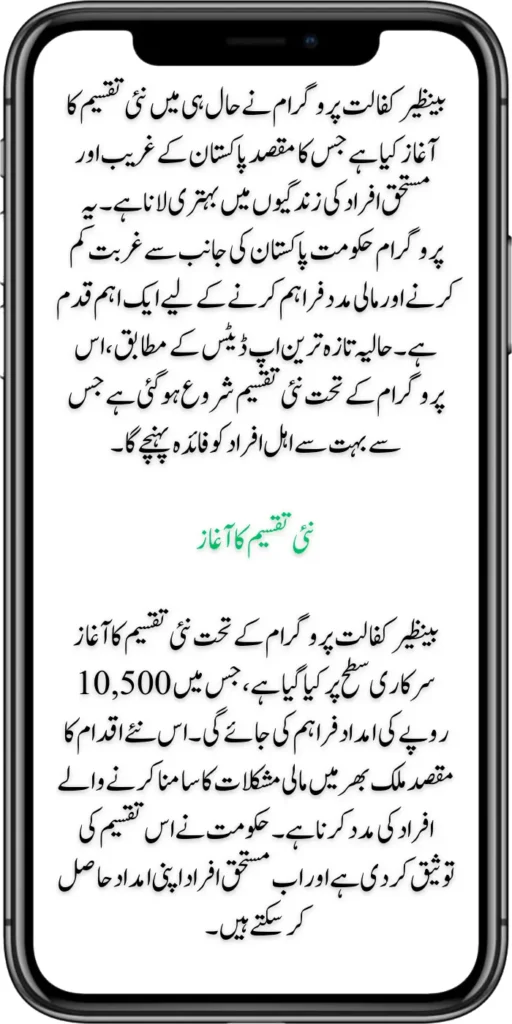 بینظیر کفالت پروگرام نے حال ہی میں نئی تقسیم کا
آغاز کیا ہے جس کا مقصد پاکستان کے غریب اور
مستحق افراد کی زندگیوں میں بہتری لانا ہے۔ یہ
پروگرام حکومت پاکستان کی جانب سے غربت کم
کرنے اور مالی مدد فراہم کرنے کے لیے ایک اہم قدم
ہے۔ حالیہ تازہ ترین اپ ڈیٹس کے مطابق، اس
پروگرام کے تحت نئی تقسیم شروع ہو گئی ہے جس
سے بہت سے اہل افراد کو فائدہ پہنچے گا۔
نئی تقسیم کا آغاز
بینظیر کفالت پروگرام کے تحت نئی تقسیم کا آغاز
سرکاری سطح پر کیا گیا ہے، جس میں 10,500
روپے کی امداد فراہم کی جائے گی۔ اس نئے اقدام کا
مقصد ملک بھر میں مالی مشکلات کا سامنا کرنے والے
افراد کی مدد کرنا ہے۔ حکومت نے اس تقسیم کی
توثیق کر دی ہے اور اب مستحق افراد اپنی امداد حاصل
کر سکتے ہیں۔